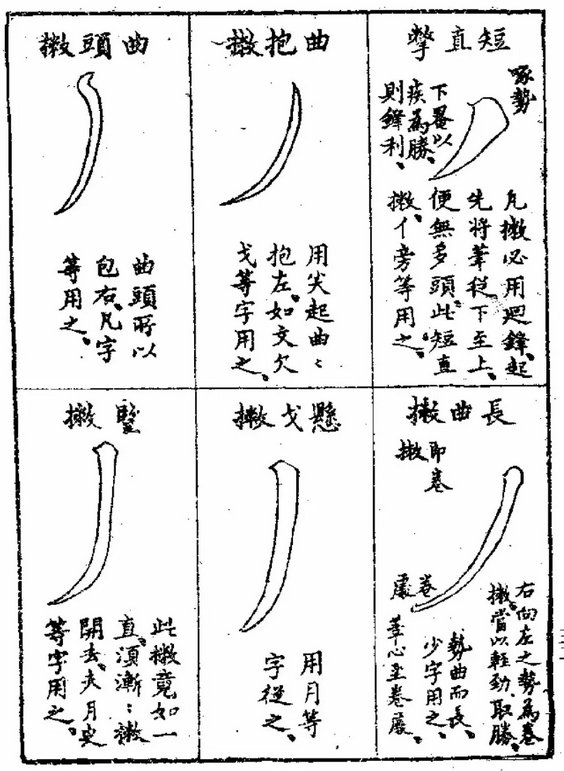 短直撆
啄勢
下墨以
疾為勝、
則鋒利、
凡撇必用廻鋒、起
先將筆從下至上、
便無多頭、此短直
撇、亻旁等用之、
曲抱撇
用尖起曲〻
抱左、如文欠
戈等字用之、
曲頭撇
曲頭所以
包右、凡字
等用之、
長曲撇
即卷
撇
右向左之勢為卷
撇、當以輕勁取勝、
勢曲而長、
少字用之、
卷
筆心至卷
懸戈撇
用月等
字從之、
豎撇
此撇竟如一
直、須漸〻撇
開去、夫月史
等字用之、